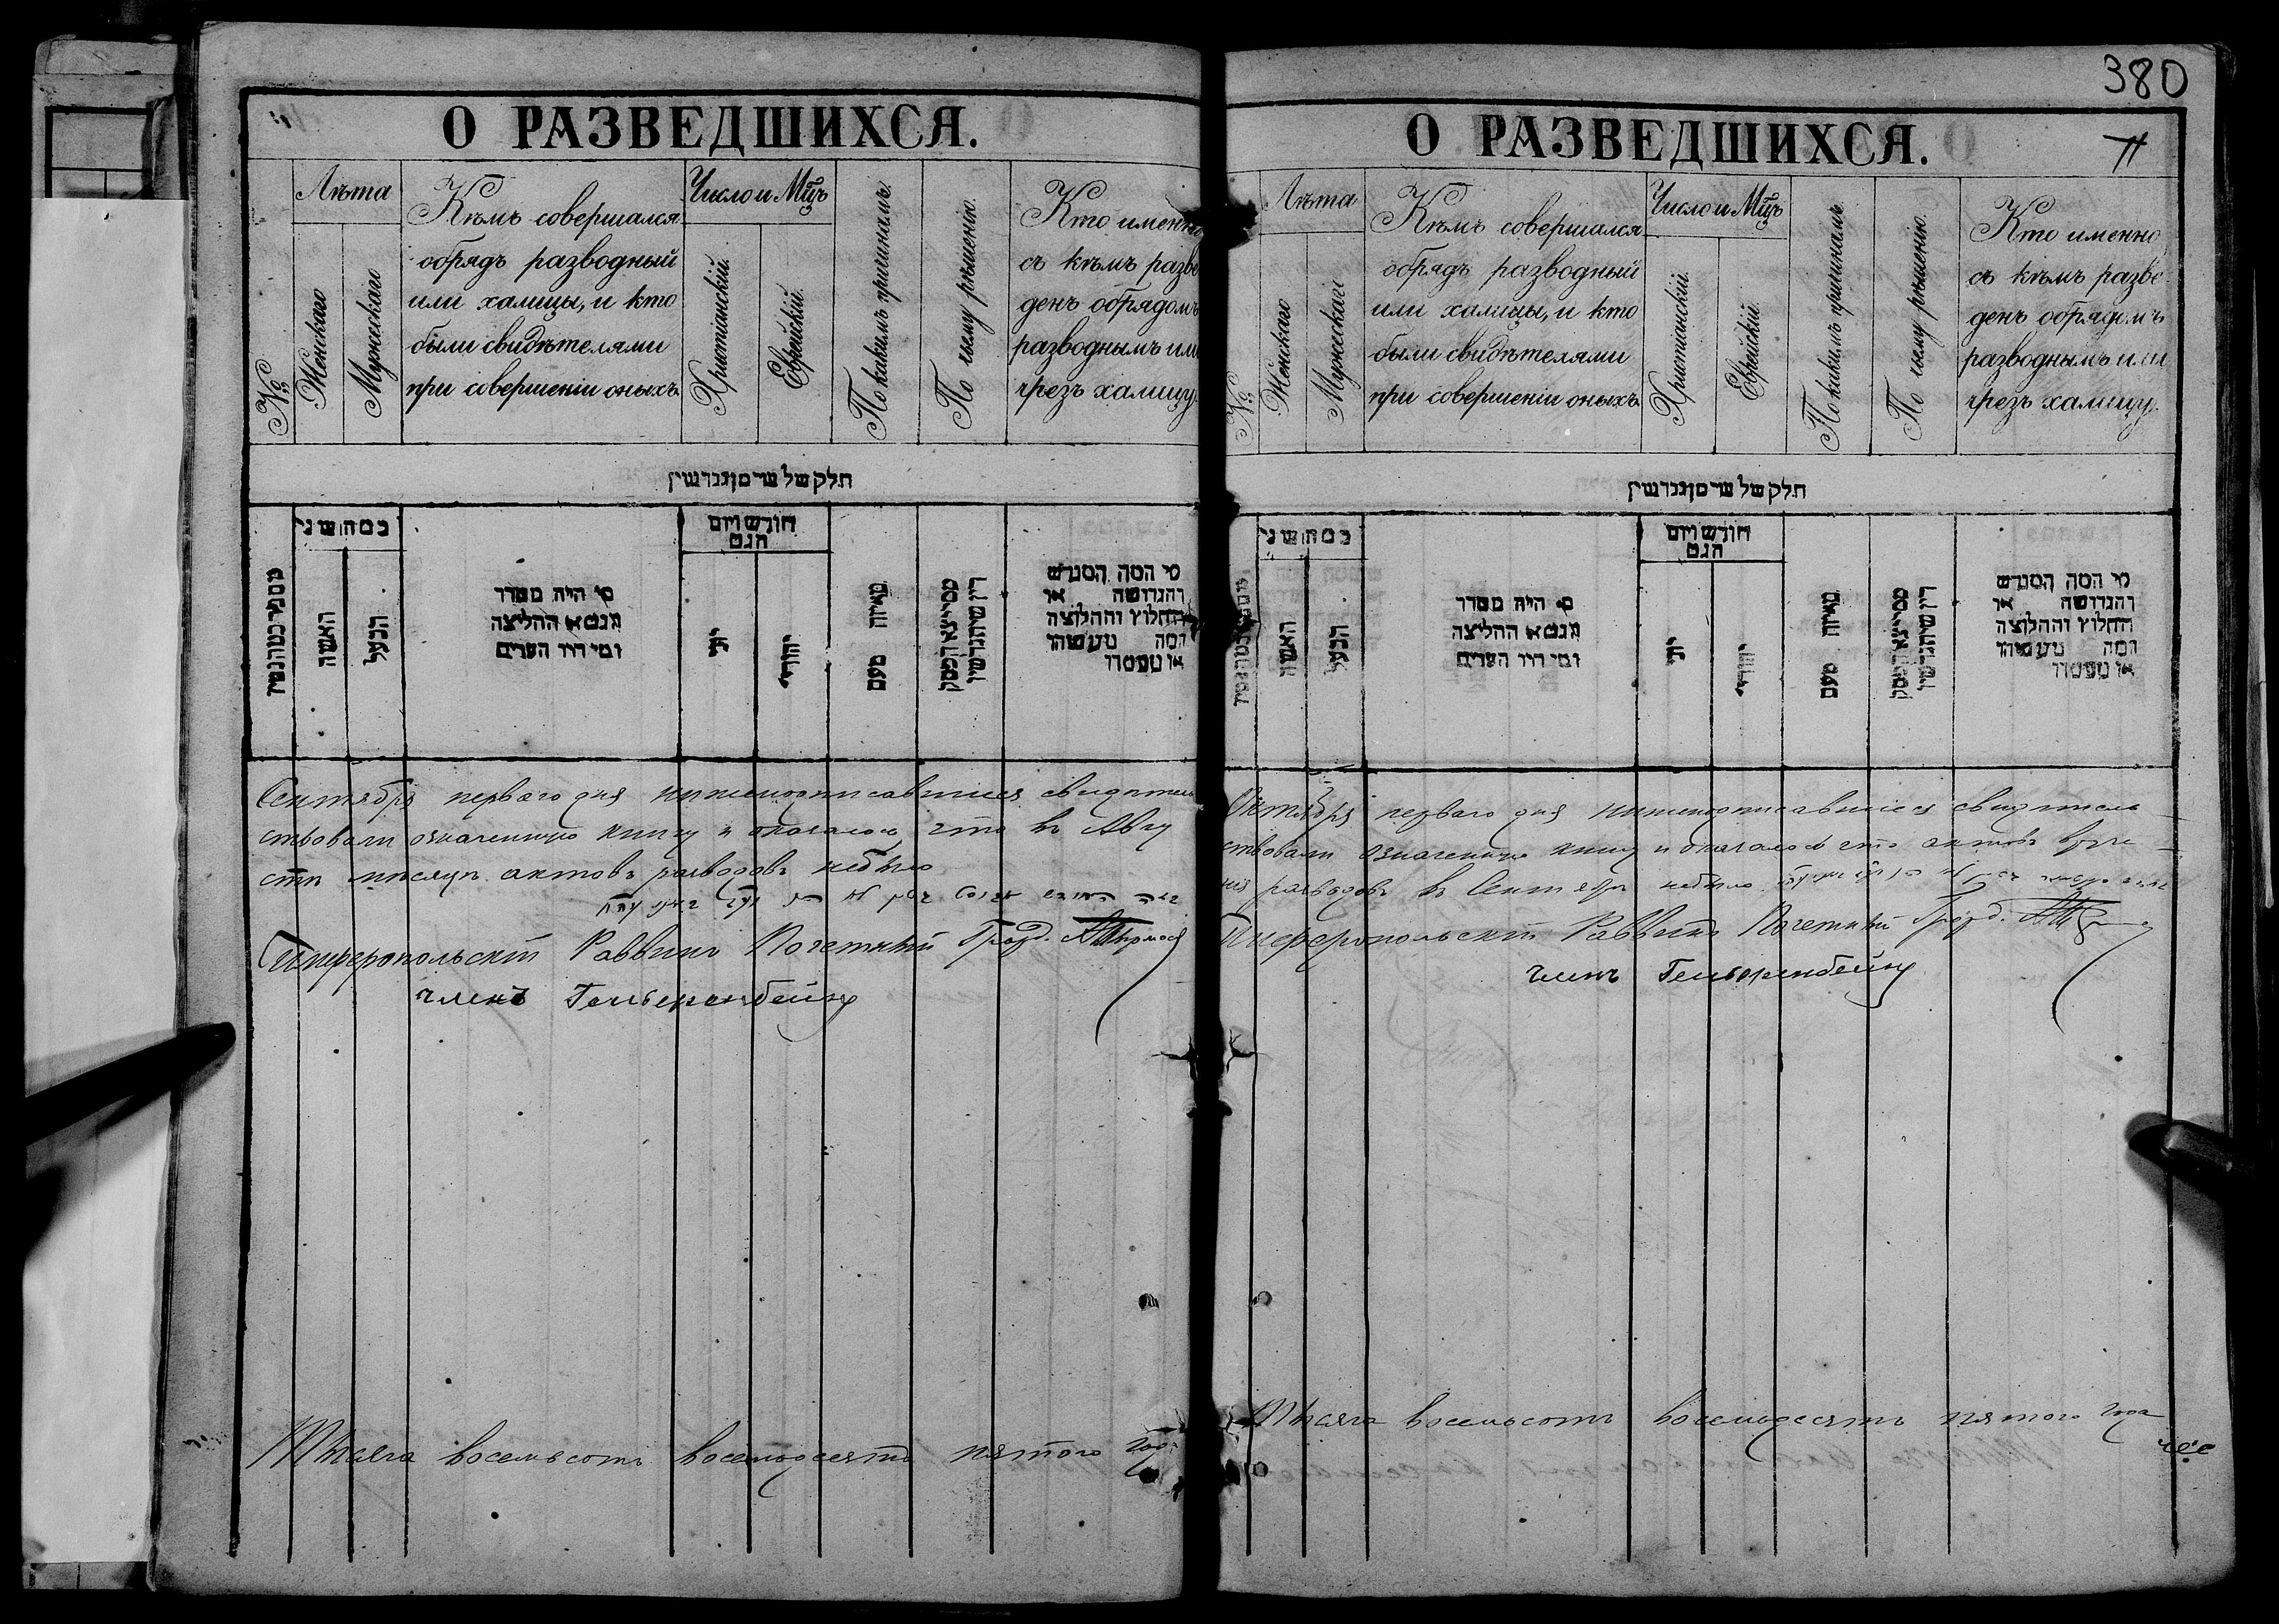 О РАЗВЕДШИХСЯ.
№
Лѣта
Женскаго
Мужескаго
Кѣмъ совершался
обрядъ разводный
или халицы, и кто
были свидѣтелями
при совершеніи оныхъ.
Число и Мцъ
Христіанскій.
Еврейскій.
По какимъ причинамъ.
По чьему рѣшенію.
Кто именно
съ кѣмъ разве
денъ обрядомъ
разводнымъ или
чрезъ халицу.
חלק של
כמה שני
האשה
הבעל
מי היה מסדר
הגט או החליצה
ומי היו העדים
חודש ויום
הגט
יוני
יהודי
מאיזה טעם
מי המה המגרש
והגרושה או
החלוץ והחלוצה
ומה מעשיהו
או מעמדו
Сентября перваго дня нижеподписавшиеся свидѣтель
ствовали означенную книгу и оказалось что въ Авгу
стѣ мѣсяцѣ актовъ разводовъ небыло
Симферопольскій Раввинъ Почетный Гражд.
членъ Гельбенбейнъ
Тысяча восемьсотъ восемьдесятъ пятого года
380
11
О РАЗВЕДШИХСЯ.
№
Лѣта
Женскаго
Мужескаго
Кѣмъ совершался
обрядъ разводный
или халицы, и кто
были свидѣтелями
при совершеніи оныхъ.
Число и Мцъ
Христіанскій.
Еврейскій.
По какимъ причинамъ.
По чьему рѣшенію.
Кто именно
съ кѣмъ разве
денъ обрядомъ
разводнымъ или
чрезъ халицу.
חלק של
כמה שני
האשה
הבעל
מי היה מסדר
הגט או החליצה
ומי היו העדים
חודש ויום
הגט
יוני
יהודי
מאיזה טעם
מי המה המגרש
והגרושה או
החלוץ והחלוצה
ומה מעשיהו
או מעמדו
Октября перваго дня нижеподписавшиеся свидѣтель
ствовали означенную книгу и оказалось что актовъ
разводовъ въ Сентябрѣ небыло
Симферопольскій Раввинъ Почетный Гражд.
членъ
Тысяча восемьсотъ восемьдесятъ пятого года